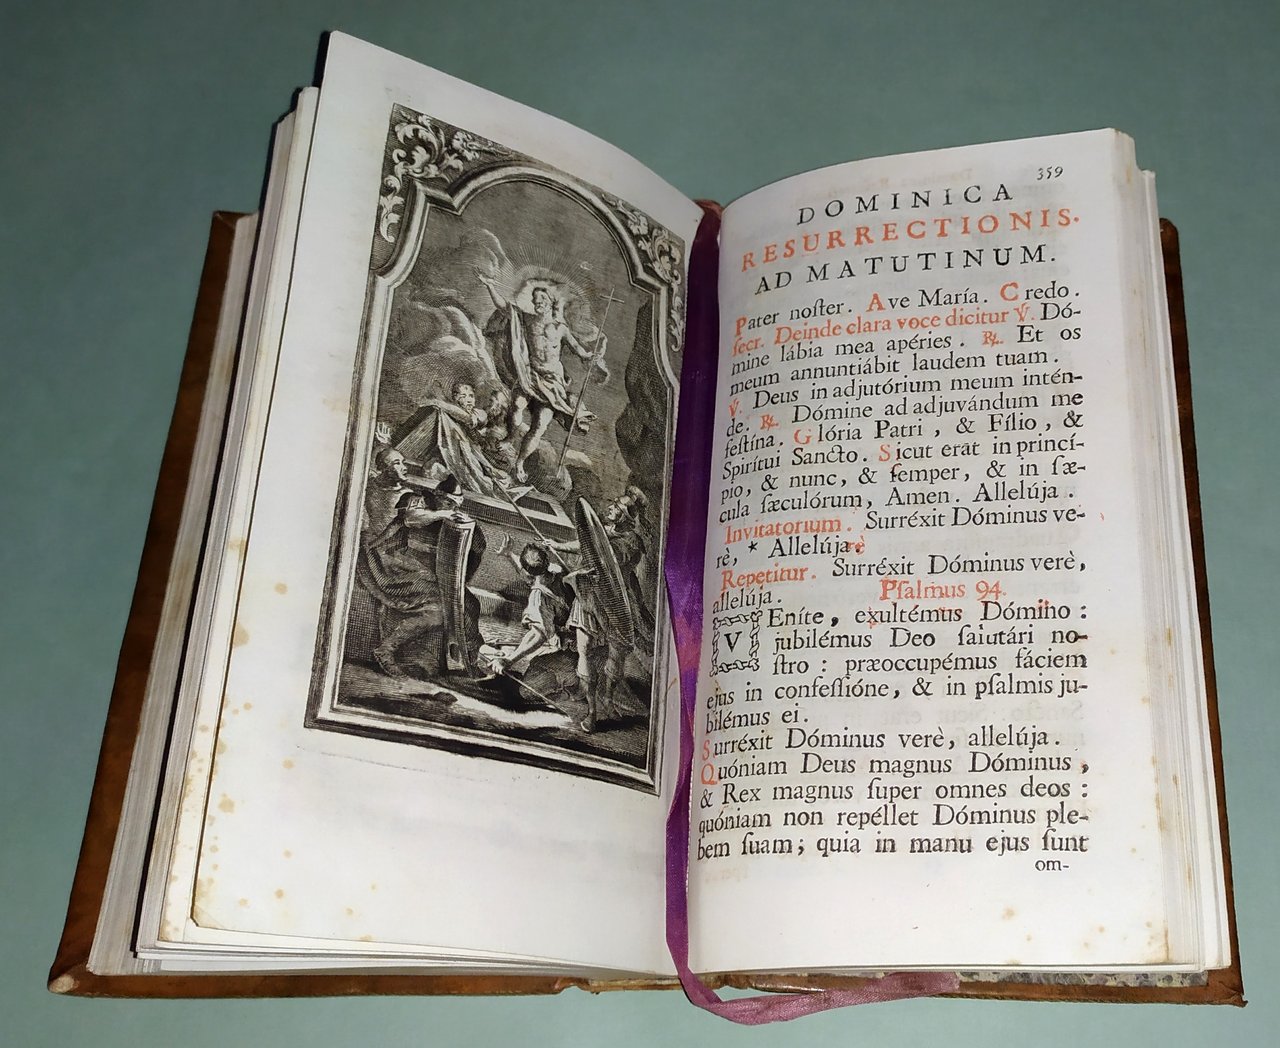 359
DOMINICA
RESURRECTIONIS.
AD MATUTINUM.
Pater noſter. Ave María. Credo.
ſecr. Deinde clara voce dicitur ℣. Dó-
mine lábia mea apéries. ℟. Et os
meum annuntiábit laudem tuam.
℣. Deus in adjutórium meum intén-
de. ℟. Dómine ad adjuvándum me
feſtína. Glória Patri, & Fílio, &
Spirítui Sancto. Sicut erat in princí-
pio, & nunc, & ſemper, & in ſæ-
cula ſæculórum, Amen. Allelúja.
Invitatorium. Surréxit Dóminus ve-
rè, * Allelúja.
Repetitur. Surréxit Dóminus verè,
allelúja. Pſalmus 94.
VEníte, exultémus Dómino:
jubilémus Deo ſalutári no-
ſtro: præoccupémus fáciem
ejus in confeſſióne, & in pſalmis ju-
bilémus ei.
Surréxit Dóminus verè, allelúja.
Quóniam Deus magnus Dóminus,
& Rex magnus ſuper omnes deos:
quóniam non repéllet Dóminus ple-
bem ſuam; quia in manu ejus ſunt
om-